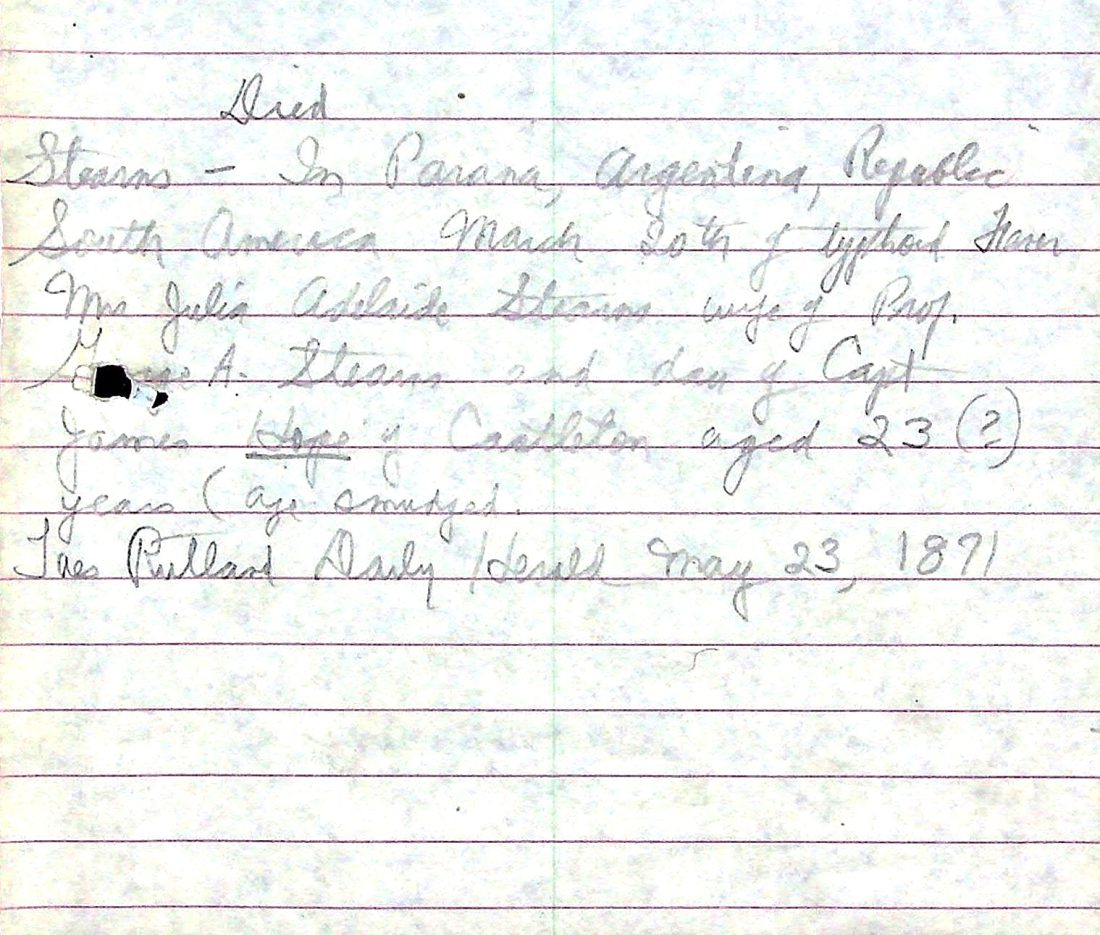 Died
Stearns – In Parana, Argentina, Republic
South America March 20th of typhoid Fever
Mrs Julia Adelaide Stearns wife of Prof.
A. Stearns and dau of Capt
James Hope of Castleton aged 23 (?)
years (age smudged.
Tues Rutland Daily Herald May 23, 1871